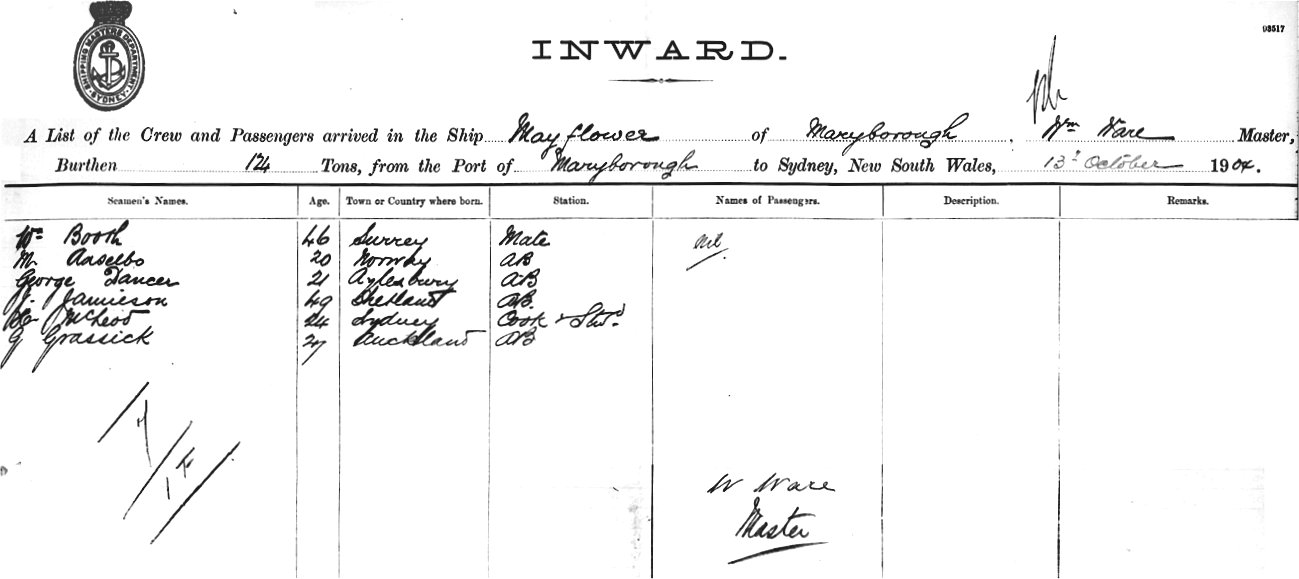 SHIPPING MASTERS DEPARTMENT
SYDNEY
93517
INWARD.
A List of the Crew and Passengers arrived in the Ship Mayflower of Maryborough, Wm Ware Master,
Burthen 124 Tons, from the Port of Maryborough to Sydney, New South Wales, 13th October 1904.
Seamen's Names. Age. Town or Country where born. Station. Names of Passengers. Description. Remarks.
Wm Booth 46 Surrey Mate Nil
M. Anselbo 20 Norway AB
George Dancer 21 Aylesbury AB
J. Jamieson 49 Shetland AB.
McLeod 24 Sydney Cook & Stwd.
G Grassick 27 Auckland AB
7
1 F
W Ware
Master